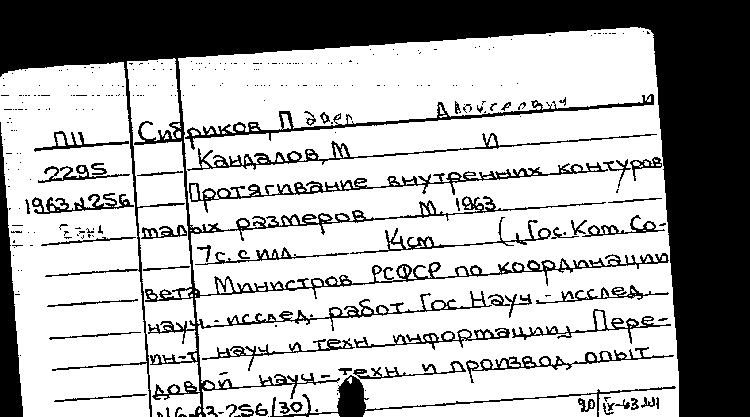 П11
2295
1963 N256
Сибриков, Павел Алексеевич и
Кандалов, М И
Протягивание внутренних контуров
малых размеров. М., 1963.
7с. с илл. 14см. (Гос. Ком. Со-
вета Министров РСФСР по координации
науч.-исслед. работ. Гос. Науч.-исслед.
ин-т науч. и техн. информации). Пере-
довой науч-техн. и производ. опыт
N6-63-256/30).